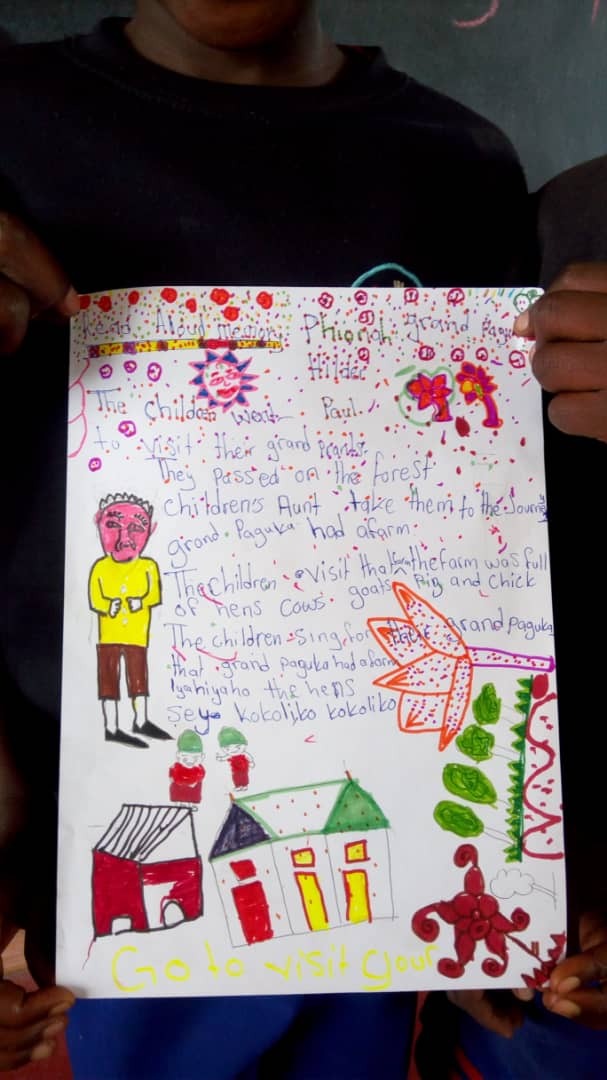 Read Aloud memory Phionah grand
Hilder
The children went Paul
to visit their grand
They passed on the forest
children's Aunt take them to the Journey
grand Paguka had afarm
The children visit that farm the farm was full
of hens cows goats Pig and Chick
The children Sing for their grand paguka
that grand paguka had a farm
Iyahiyaho the hens
sey kokoliko kokoliko
Go to visit your